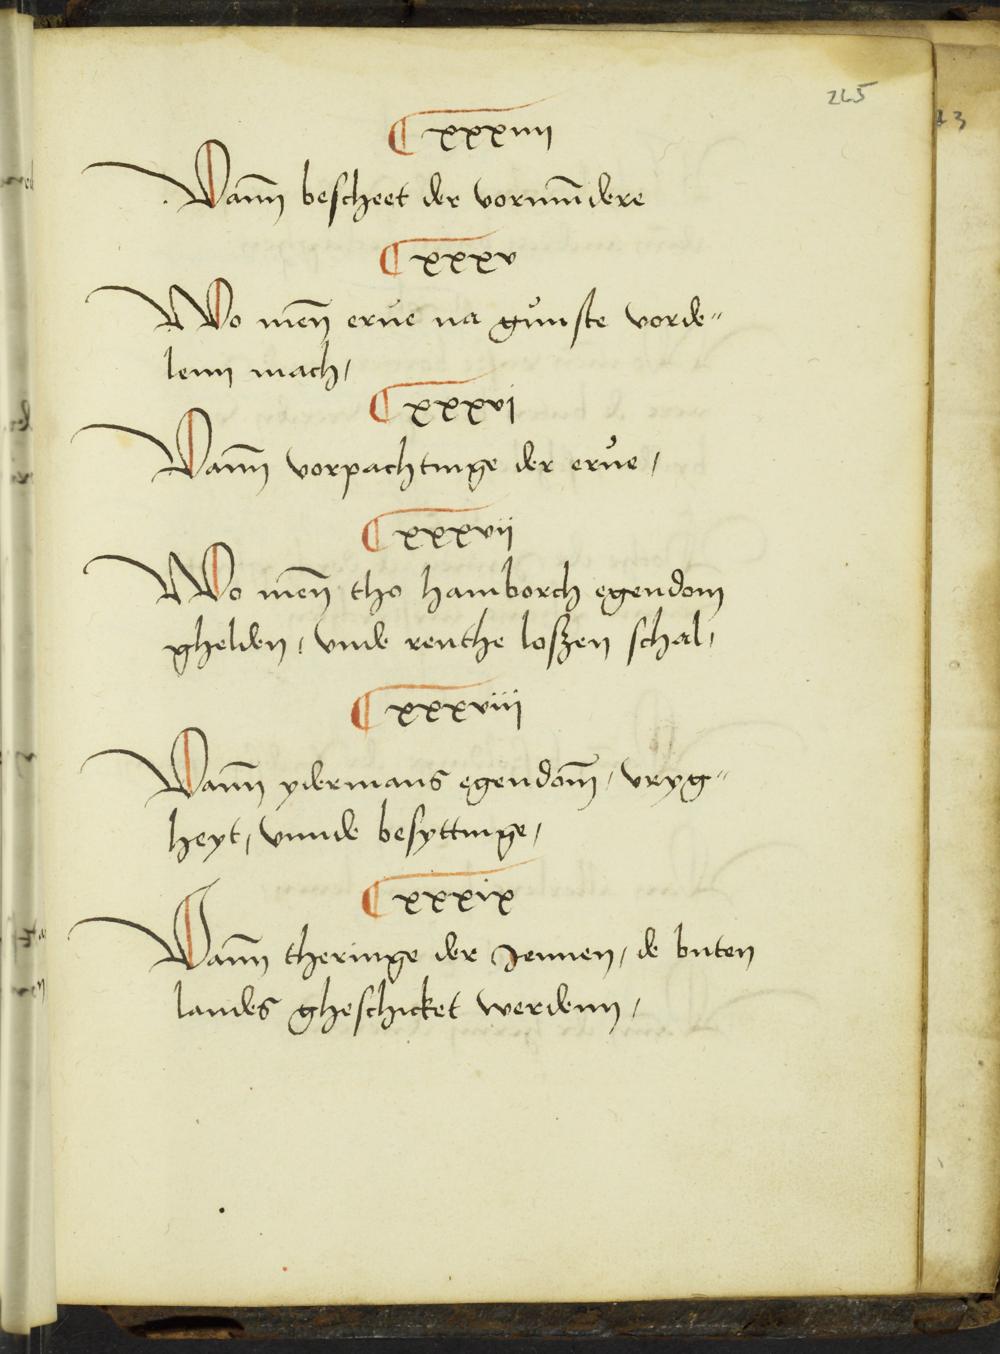 265
¶ xxxiiii
Vann bescheet der vormundere
¶ xxxv
Wo men erue na gunste vorde„
lenn mach,
¶ xxxvi
Vann vorpachtinge der erue,
¶ xxxvij
Wo men tho hamborch egendom
ghelden, vnde renthe loszen schal,
¶ xxxviij
Vann ydermans egendom, vryg„
heyt, vnnde besyttinge,
¶ xxxix
Vann theringe der Jennen, de buten
landes gheschicket werdenn,